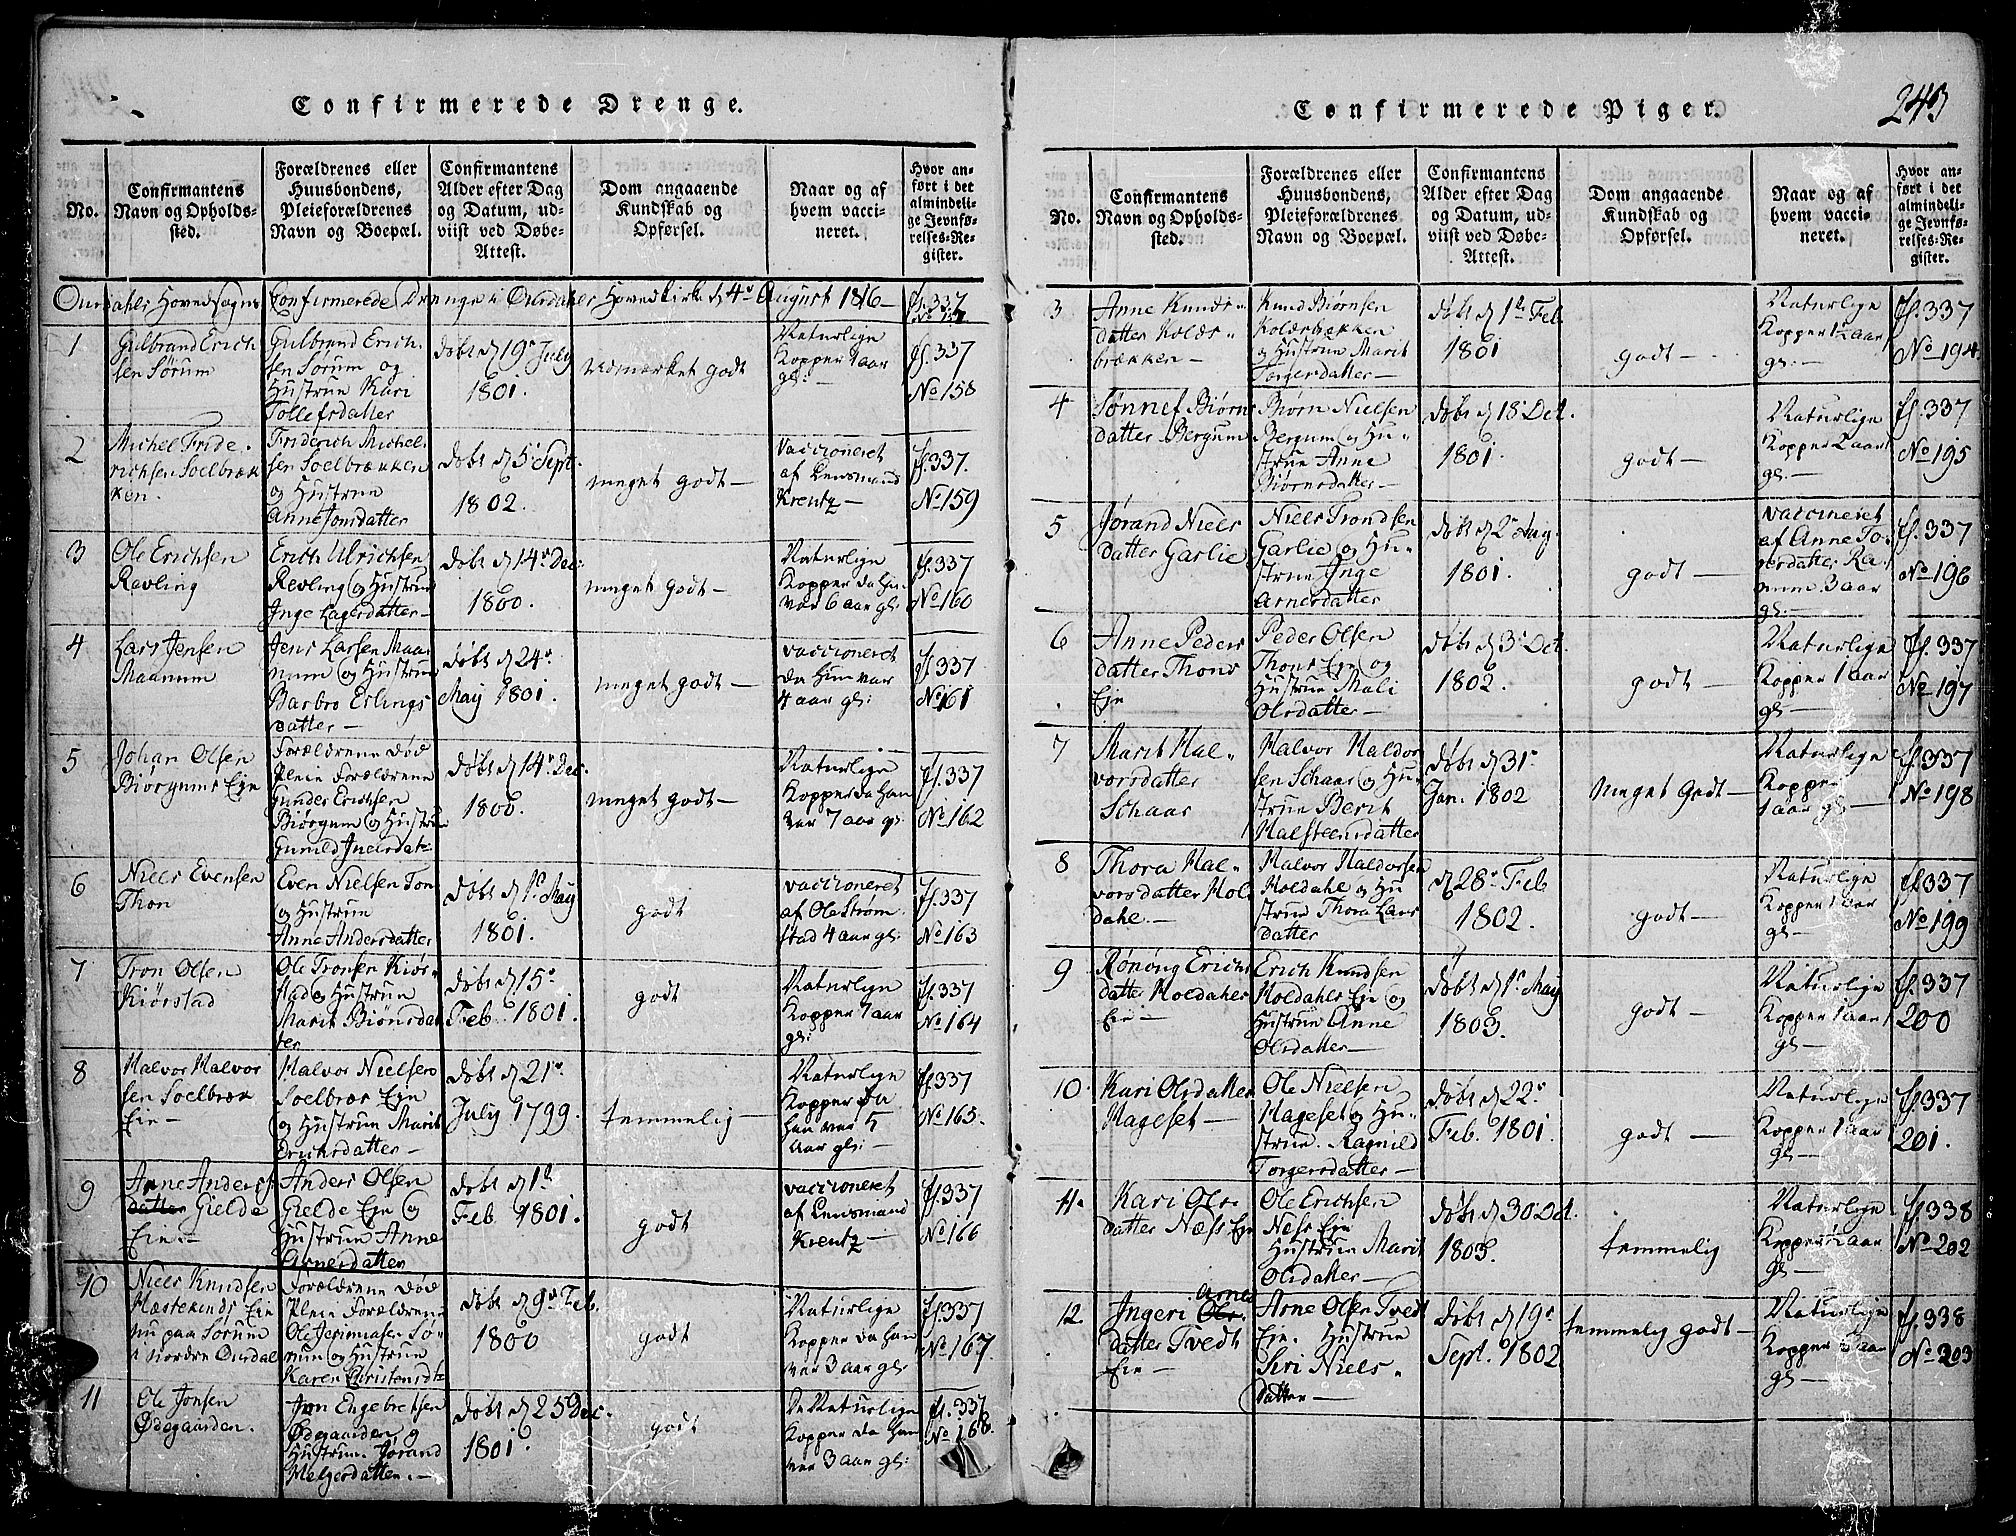 Confirmerede Drenge.
No.
Confirmantens
Navn og Opholds-
sted.
Forældrenes eller
Huusbondens,
Pleieforældrenes
Navn og Boepæl.
Confirmantens
Alder efter Dag
og Datum, ud-
viist ved Døbe-
Attest.
Dom angaaende
Kundskab og
Opførsel.
Naar og af
hvem vacci-
neret.
Hvor an-
ført i det
almindeli-
ge Jevnfø-
relses-Re-
gister.
Ourdahls Hovedsogns Confirmerede Drenge i Ourdahls Hovedkirke d 4de August 1816
1
Gulbrand Erich
sen Sørum
Gulbrand Erich
sen Sørum og
Hustrue Kari
Tollefsdatter
døbt d 19de July
1801.
Udmærket godt
Naturlige
Kopper 1 aar
gl: —
fl. 337
No 158
2
Michel Fride-
richsen Soelbræk
ken.
Friderich Michel-
sen Soelbrækken
og Hustrue
Anne Jonsdatter
døbt d 5te Sept.
1802.
meget godt —
vaccioneret
af Lensmand
Krentz —
fl. 337.
No 159
3
Ole Erichsen
Revling
Erich Ulrichsen
Revling og Hustrue
Inge Lagersdatter —
døbt d 14de Dec:
1800.
meget godt —
Naturlige
Kopper da han
var 6 aar gl:
fl. 337
No 160
4
Lars Jensen
Maanum
Jens Larsen Maa
num og Hustrue
Barbro Erlings
datter —
døbt d 24de
May 1801.
meget godt —
vaccioneret
da Hun var
4 aar gl:
fl. 337
No 161
5
Johan Olsen
Biørgums Eje
Forældrene død
Pleie Forældrene
Gunder Erichsen
Biørgum og Hustrue
Gunild Juelsdat:
døbt d 14de Dec.
1800.
meget godt —
Naturlige
Kopper da Han
var 7 aar gl:
fl. 337
No 162
6
Niels Evensen
Thon
Even Nielsen Ton
og Hustrue
Anne Andersdatter
døbt d 1de May
1801.
godt
vaccioneret
af Ole Strøm-
stad 4 aar gl:
fl. 337
No 163
7
Tron Olsen
Kiørstad
Ole Tronsen Kiør-
stad og Hustrue
Marit Biørnsdat
ter
døbt d 15de
Feb. 1801.
godt
Naturlige
Kopper 7 aar
gl:
fl. 337
No 164
8
Halvor Halvor
sen Soelbræk
Eie —
Halvor Nielsen
Soelbræk Eje
og Hustrue Marit
Erichsdatter —
døbt d 21de
July 1799.
temmelig —
Naturlige
Kopper da
han var 5
Aar gl: —
fl. 337
No 165.
9
Arne Anders
Gielde
Eie —
Anders Olsen
Gielde Eje og
Hustrue Anne
Arnesdatter
døbt d 1de
Feb 1801.
godt
vaccioneret
af Lensmand
Krentz —
fl. 337
No 166
10
Niels Knudsen
Eie
nu paa Sørum
i Nordre Ourdal
Forældrene Død
Pleie Forældrene
Ole Jerimiasen Sø-
rum og Hustrue
Karen Christensdtr
døbt d 9de Feb.
1800
godt
Naturlige
Kopper da Han
var 3 aar gl:
fl. 337
No 167
11
Ole Jonsen
Ødegaarden.
Jon Engebretsen
Ødegaarden og
Hustrue Jørand
Helgesdatter. —
døbt d 25 Dec.
1801.
godt
De Naturlige
Kopper da Han
var 3 aar gl:
fl. 337
No 168.
Confirmerede Piger.
243
No.
Confirmantens
Navn og Opholds-
sted.
Forældrenes eller
Huusbondens,
Pleieforældrenes
Navn og Boepæl.
Confirmantens
Alder efter Dag
og Datum, ud-
viist ved Døbe-
Attest.
Dom angaaende
Kundskab og
Opførsel.
Naar og af
hvem vacci-
neret.
Hvor an-
ført i det
almindeli-
ge Jevnfø-
relses-Re-
gister.
3
Anne Knuds-
datter Kolds-
brækken —
Knud Biørnsen
Koldsbrækken
og Hustrue Marit
Torgersdatter —
døbt d 1de Feb
1801
godt —
Naturlige
Kopper 1½ aar
gl: —
fl. 337
No 194
4
Sønnef Biørns
datter Bergum
Biørn Nielsen
Bergum og Hu-
strue Anne
Biørnsdatter —
døbt d 18de Oct.
1801.
godt —
Naturlige
Kopper 2 aar
gl —
fl. 337
No 195
5
Jørand Niels
datter Garlie
Niels Trondsen
Garlie og Hu-
strue Inge
Arnesdatter
døbt d 2de Aug.
1801.
godt —
vaccineret
af Anne To-
resdatter Ra-
num 3 aar
gl: —
fl. 337
No 196
6
Anne Peders
datter Thons
Eje
Peder Olsen
Thons Eje og
Hustrue Mali
Olsdatter —
døbt d 3de Oct.
1802.
godt —
Naturlige
Kopper 1 aar
gl —
fl. 337
No 197
7
Marit Hal-
vorsdatter
Schaar
Halvor Haldor
sen Schaar og Hu-
strue Berit
Halsteensdatter
døbt d 31de
Jan. 1802
meget Godt —
Naturlige
Kopper
1 aar gl —
fl. 337
No 198
8
Thora Hal-
vorsdatter Hol
dahl —
Halvor Haldorsen
Holdahl og Hu
strue Thora Lars
datter
d 28de Feb
1802.
godt —
Naturlige
Kopper 1 aar
gl —
fl. 337
No 199
9
Rønøug Erichs
datter Holdahls
Eie —
Erich Knudsen
Holdahls Eje og
Hustrue Anne
Olsdatter —
døbt d 1de May
1803.
godt —
Naturlige
Kopper 1 aar
gl —
fl. 337
200
10
Kari Olsdatter
Hageset —
Ole Nielsen
Hageset og Hu-
strue Ragnild
Torgersdatter —
døbt d 22de
Feb. 1801.
godt —
Naturlige
Kopper 1 aar
gl —
fl. 337
201.
11.
Kari Ols-
datter Næss Eje
Ole Erichsen
Næss Eje
Hustrue Marit
Olsdatter —
døbt d 30 Oct.
1803.
temmelig
Naturlige
Kopper ½ aar
gl —
fl. 338
No 202
12
Arnes
Ingeri Ols-
datter Tvedt
Eie —
Arne Olsen Tvedt
Eje. Hustrue
Siri Niels-
datter —
døbt d 19de
Sept. 1802
temmelig godt —
Naturlige
Kopper 3 aar
gl —
fl. 338
No 203